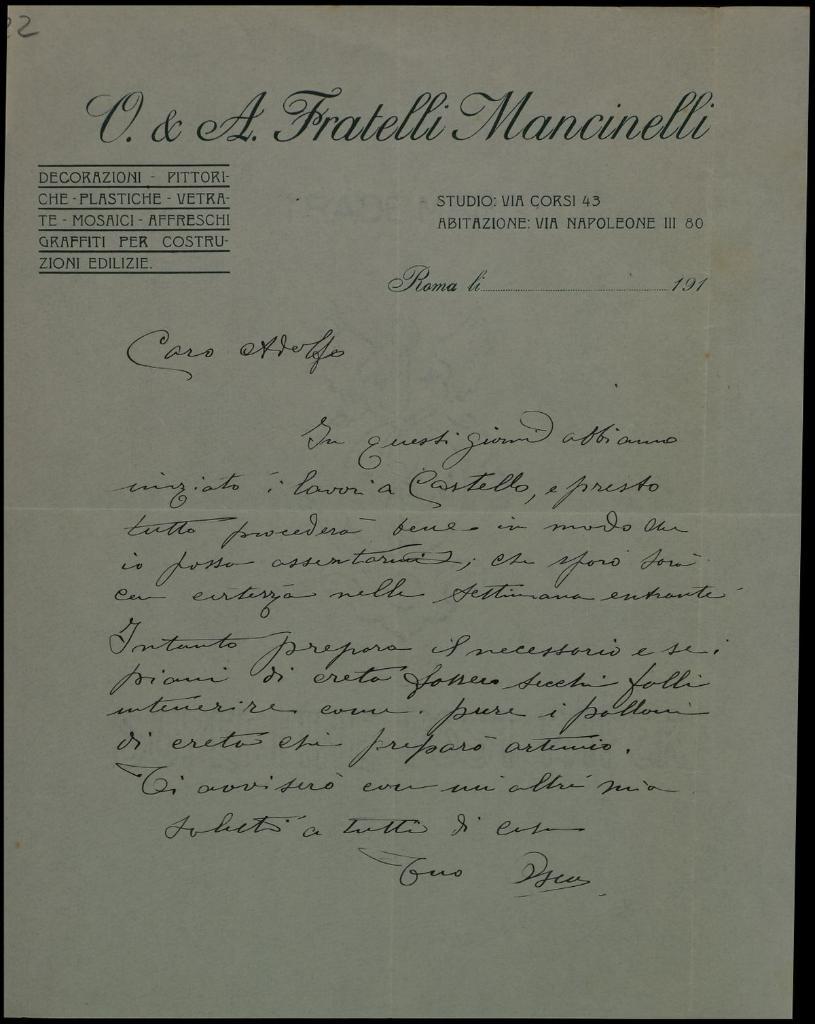 22
O. & A. Fratelli Mancinelli
DECORAZIONI - PITTORI-
CHE - PLASTICHE - VETRA-
TE - MOSAICI - AFFRESCHI
GRAFFITI PER COSTRU-
ZIONI EDILIZIE.
STUDIO: VIA CORSI 43
ABITAZIONE: VIA NAPOLEONE III 80
Roma li 191
Caro Adolfo
In questi giorni abbiamo
iniziato i lavori a Castello, e presto
tutto procederà bene in modo che
io possa assentarmi; che spero sarà
con certezza nella settimana entrante
Intanto prepara il necessario e se i
piani di creta fossero secchi falli
intenerire come pure i palloni
di creta che preparò artemio.
Ti avviserò con un altra mia
Saluti a tutti di casa
Tuo